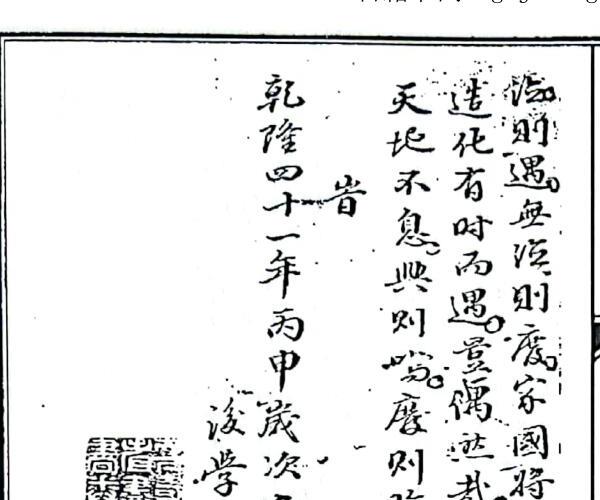 則遇無須則廢家國將
造化有时而遇豈偶然哉
天地不息興則鳴廢則
旹
乾隆四十一年丙申歲次
後学